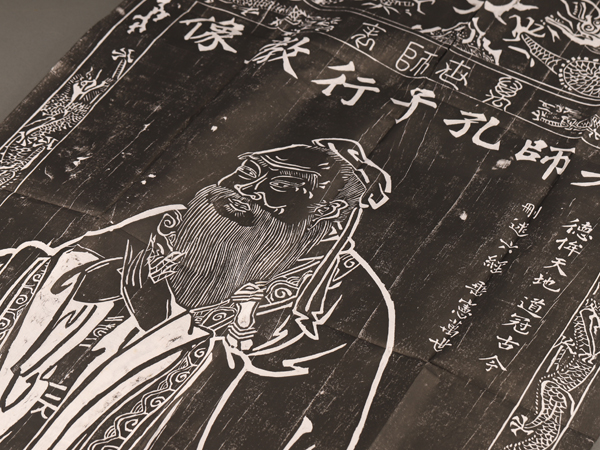 萬世師表
師孔子行教像
德侔天地道冠古今
刪述六經垂憲萬世